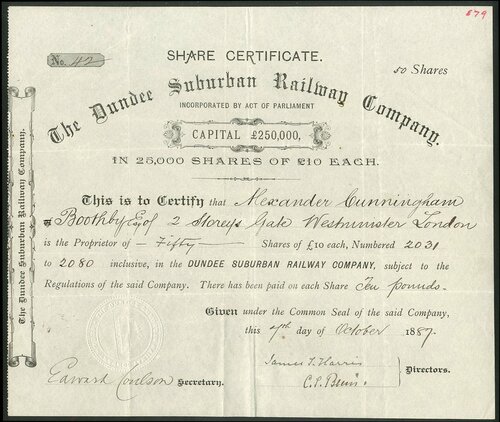 879
No. 42
SHARE CERTIFICATE.
50 Shares
The Dundee Suburban Railway Company.
INCORPORATED BY ACT OF PARLIAMENT
CAPITAL £250,000,
IN 25,000 SHARES OF £10 EACH.
The Dundee Suburban Railway Company.
This is to Certify that Alexander Cunningham
Boothby Esq of 2 Storeys Gate Westminster London
is the Proprietor of Fifty Shares of £10 each, Numbered 2031
to 2080 inclusive, in the DUNDEE SUBURBAN RAILWAY COMPANY, subject to the
Regulations of the said Company. There has been paid on each Share Ten pounds.
Given under the Common Seal of the said Company,
this 7th day of October 1887.
Edward Coulson Secretary.
James T. Harris
Directors.